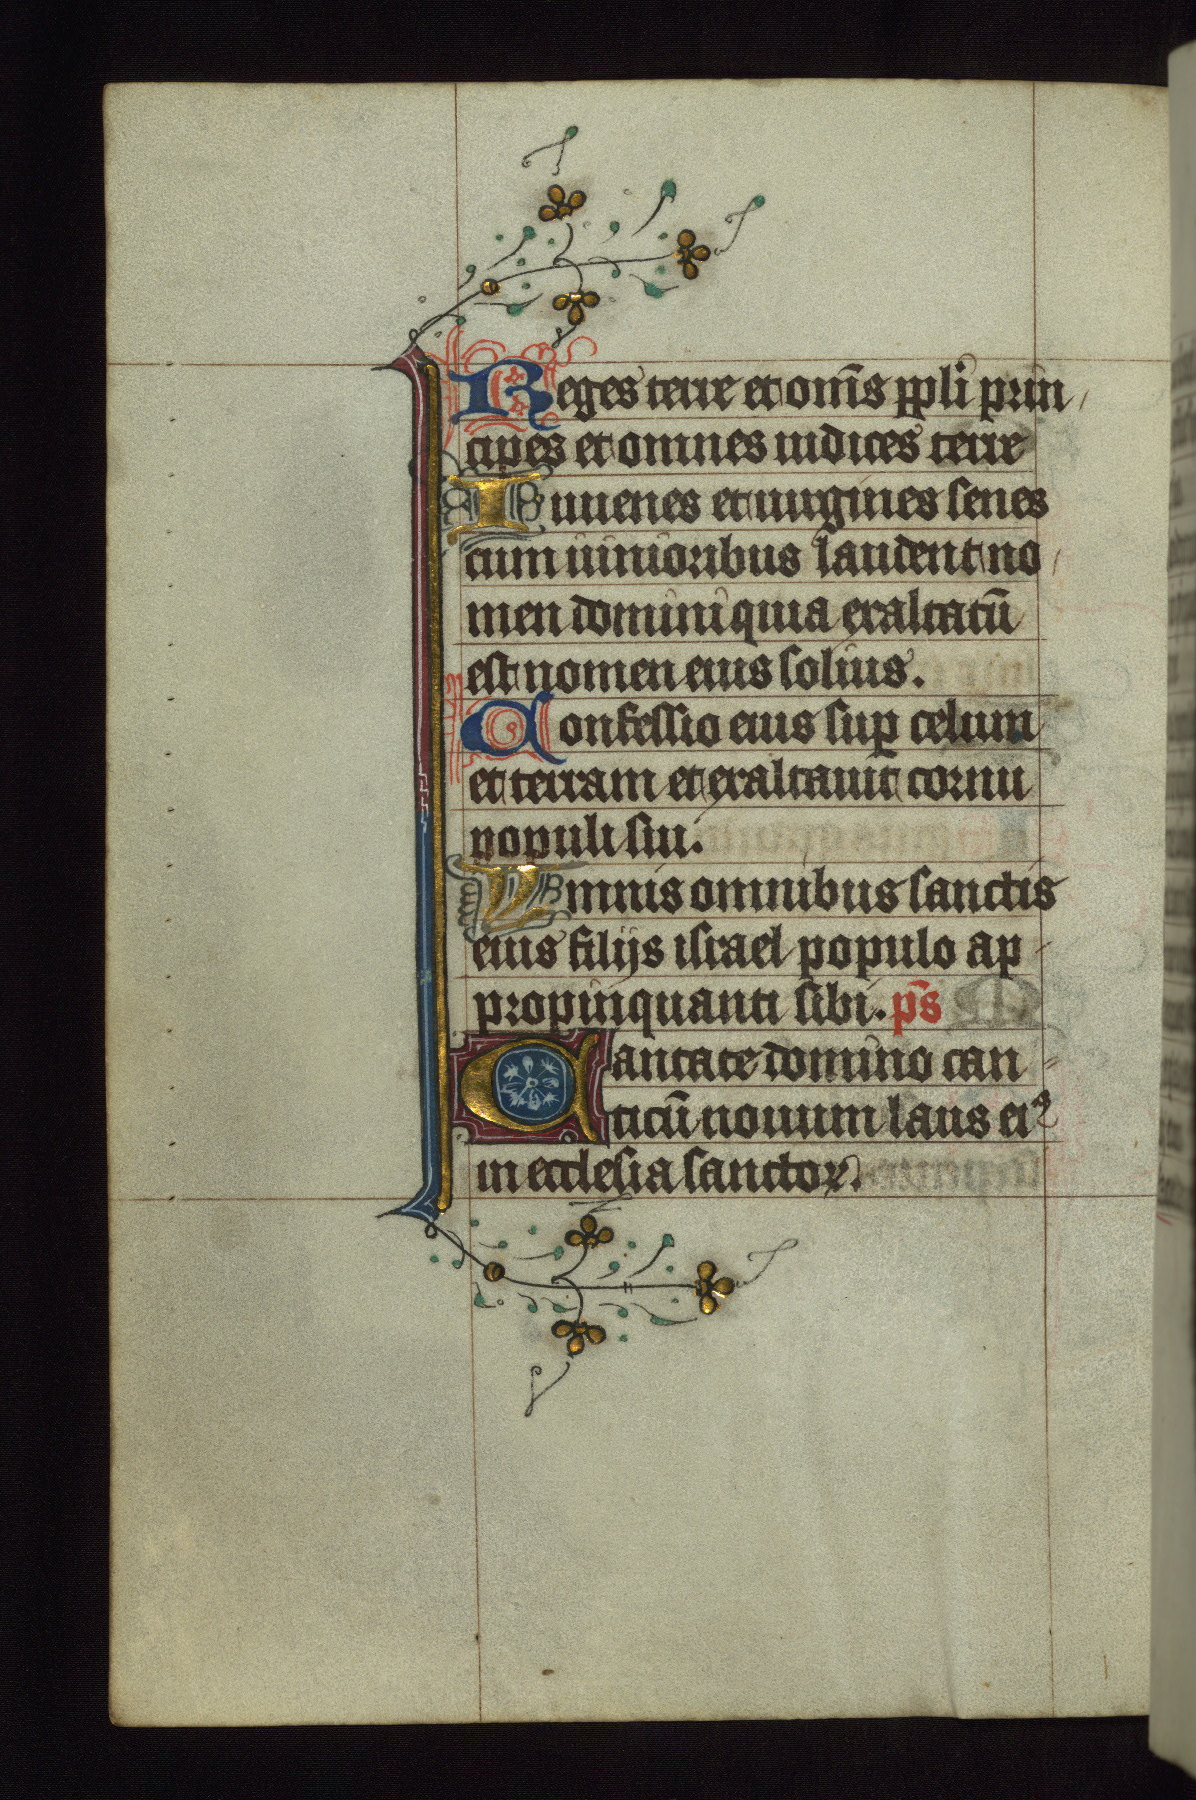 Reges terre et om̄s ppl̄i prin
cipes et omnes iudices terre
Iuuenes et uirgines senes
cum iunioribus laudent no
men domini quia exaltatū
est nomen eius solius.
Confessio eius suꝑ celum
et terram et exaltauit cornu
populi sui.
Ymnis omnibus sanctis
eius filijs israel populo ap
propinquanti sibi. p̄s
Cantate domino can
ticū nouum laus eiꝰ
in ecclesia sanctoꝝ.